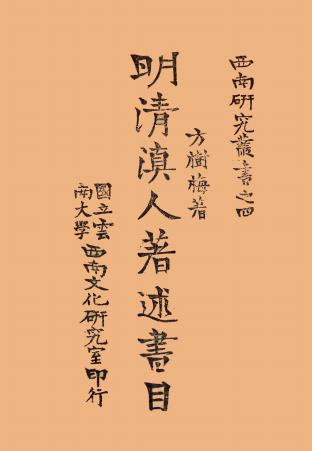 西南研究叢書之四
明清滇人著述書目
方樹梅著
國立雲南大學西南文化研究室印行